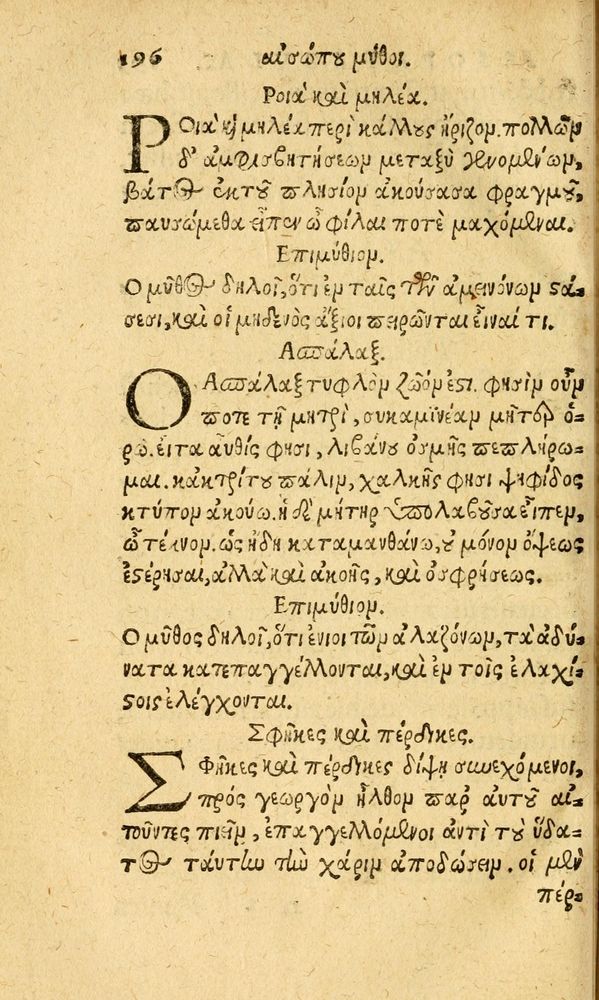 196 αἰσώπου μῦθοι.
Ροιὰ καὶ μηλέα.
ΡΟιὰ καὶ μηλέα περὶ κάλλους ἤριζον. πολλῶν
δ' ἀμφισβητήσεων μεταξὺ γενομένων,
βάτος ἐκ τοῦ πλησίον ἀκούσασα φραγμοῦ,
παυσώμεθα εἶπεν ὦ φίλαι ποτὲ μαχόμεναι.
Επιμύθιον.
Ο μῦθος δηλοῖ, ὅτι ἐν ταῖς τῶν ἀμεινόνων στά-
σεσι, καὶ οἱ μηδενὸς ἄξιοι πειρῶνται εἶναί τι.
Ασπάλαξ.
Ο Ασπάλαξ τυφλὸν ζῶόν ἐστι. φησὶν οὖν
ποτε τῇ μητρὶ, συκαμινέαν μῆτερ ὁ-
ρῶ. εἶτα αὖθίς φησι, λιβάνου ὀσμῆς πεπλήρω-
μαι. κἀκ τρίτου πάλιν, χαλκῆς φησι ψηφίδος
κτύπον ἀκούω. ἡ δὲ μήτηρ ὑπολαβοῦσα εἶπεν,
ὦ τέκνον. ὡς ἤδη καταμανθάνω, οὐ μόνον ὄψεως
ἐστέρησαι, ἀλλὰ καὶ ἀκοῆς, καὶ ὀσφρήσεως.
Επιμύθιον.
Ο μῦθος δηλοῖ, ὅτι ἔνιοι τῶν ἀλαζόνων, τὰ ἀδύ-
νατα κατεπαγγέλλονται, καὶ ἐν τοῖς ἐλαχί-
στοις ἐλέγχονται.
Σφῆκες καὶ πέρδικες.
ΣΦῆκες καὶ πέρδικες δίψῃ συνεχόμενοι,
πρὸς γεωργὸν ἦλθον παρ' αὐτοῦ αἰ-
τοῦντες πιεῖν, ἐπαγγελλόμενοι ἀντὶ τοῦ ὕδα-
τος ταύτην τὴν χάριν ἀποδώσειν. οἱ μὲν
πέρ-